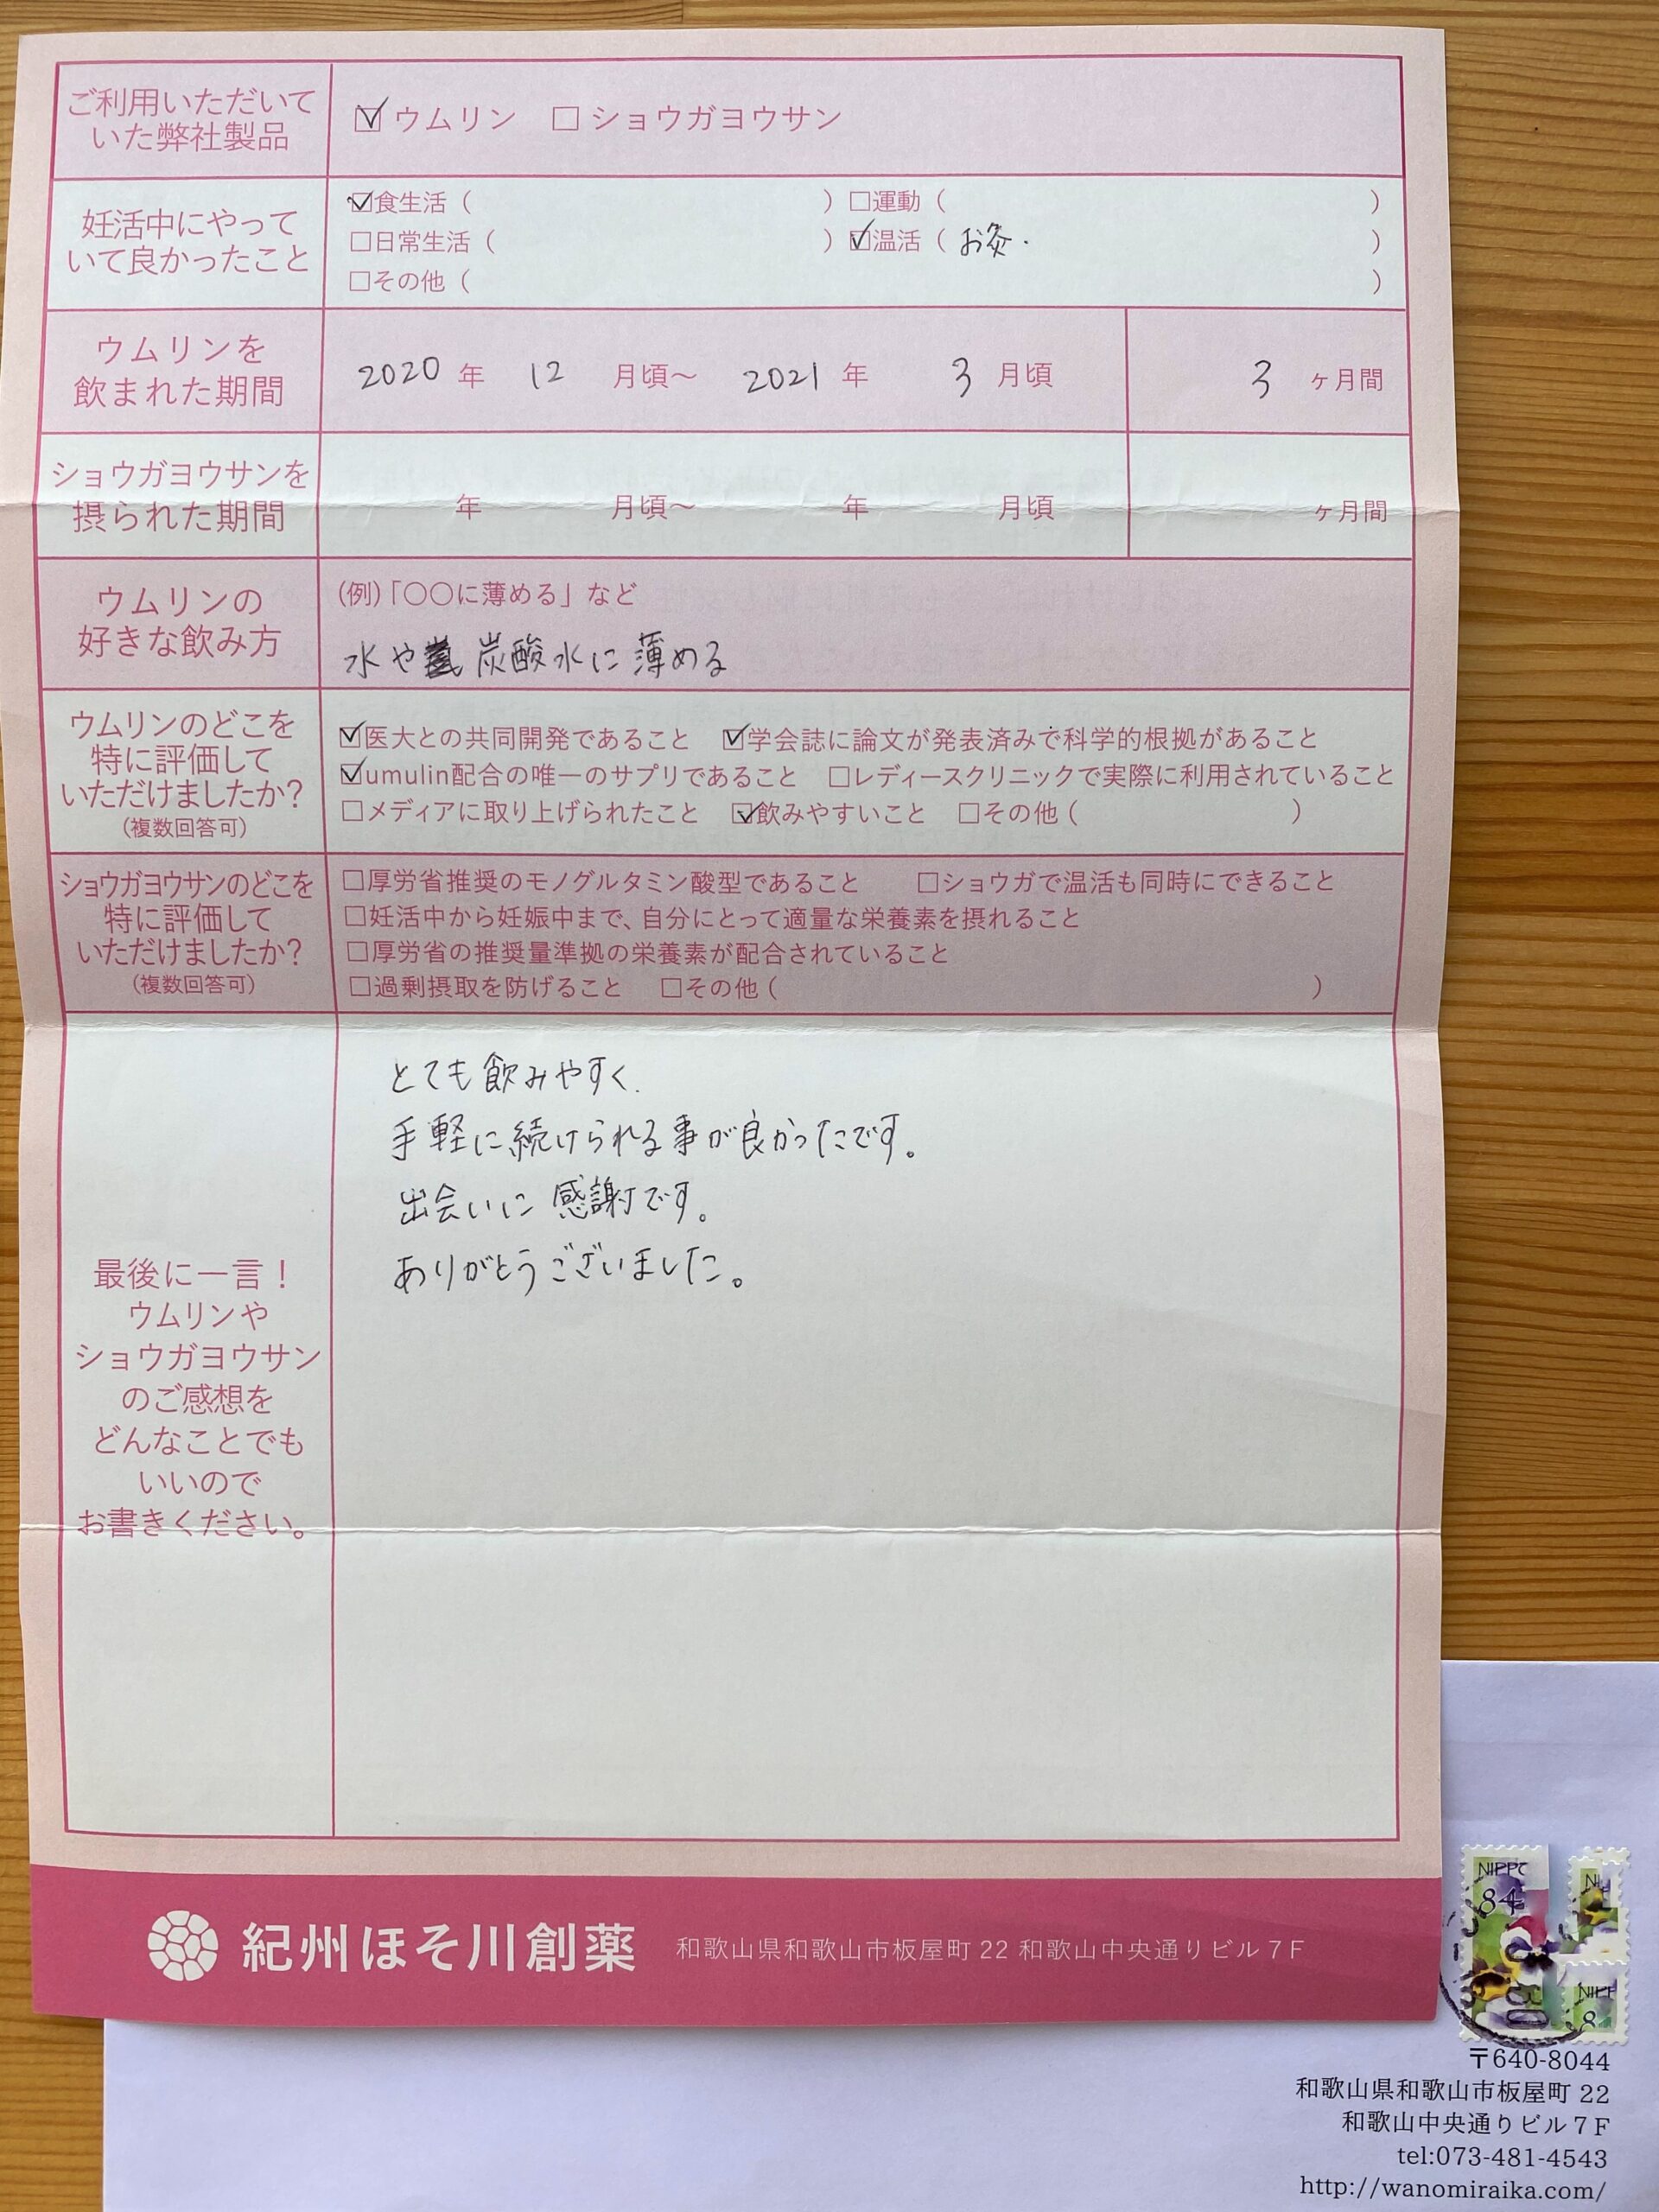 ご利用いただいて
いた弊社製品
☑ウムリン □ショウガヨウサン
妊活中にやって
いて良かったこと
☑食生活（ ） □運動（ ）
□日常生活（ ） ☑温活（ お灸. ）
□その他（ ）
ウムリンを
飲まれた期間
2020 年 12 月頃～ 2021 年 3 月頃 3 ヶ月間
ショウガヨウサンを
摂られた期間
年 月頃～ 年 月頃 ヶ月間
ウムリンの
好きな飲み方
(例)「〇〇に薄める」など
水や炭酸水に薄める
ウムリンのどこを
特に評価して
いただけましたか？
（複数回答可）
☑医大との共同開発であること ☑学会誌に論文が発表済みで科学的根拠があること
☑umulin配合の唯一のサプリであること □レディースクリニックで実際に利用されていること
□メディアに取り上げられたこと ☑飲みやすいこと □その他（ ）
ショウガヨウサンのどこを
特に評価して
いただけましたか？
（複数回答可）
□厚労省推奨のモノグルタミン酸型であること □ショウガで温活も同時にできること
□妊活中から妊娠中まで、自分にとって適量な栄養素を摂れること
□厚労省の推奨量準拠の栄養素が配合されていること
□過剰摂取を防げること □その他（ ）
最後に一言！
ウムリンや
ショウガヨウサン
のご感想を
どんなことでも
いいので
お書きください。
とても飲みやすく、
手軽に続けられる事が良かったです。
出会いに感謝です。
ありがとうございました。
紀州ほそ川創薬 和歌山県和歌山市板屋町 22 和歌山中央通りビル７F
NIPP
84
NI
NIPP
8
〒640-8044
和歌山県和歌山市板屋町 22
和歌山中央通りビル７F
tel:073-481-4543
http://wanomiraika.com/